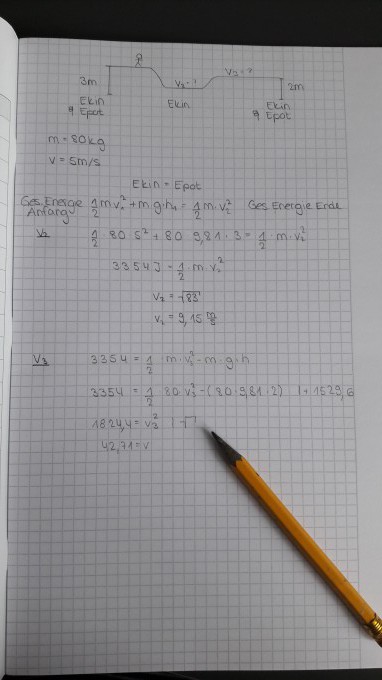 3m
V₂=?
V₃=?
2m
Ekin
+ Epot
Ekin
Ekin
+ Epot
m = 80kg
v = 5m/s
Ekin = Epot
Ges. Energie Anfang 1/2 m v₁² + m·g·h₁ = 1/2 m·v₂² Ges Energie Ende
V₂ 1/2 · 80 · 5² + 80 · 9,81 · 3 = 1/2 · m · v₂²
3354J = 1/2 · m · v₂²
V₂ = √83
V₂ = 9,15 m/s
V₃ 3354 = 1/2 · m · v₃² - m · g · h
3354 = 1/2 · 80 · v₃² - (80 · 9,81 · 2) | + 1529,6
1824,4 = v₃² | √
42,71 = v